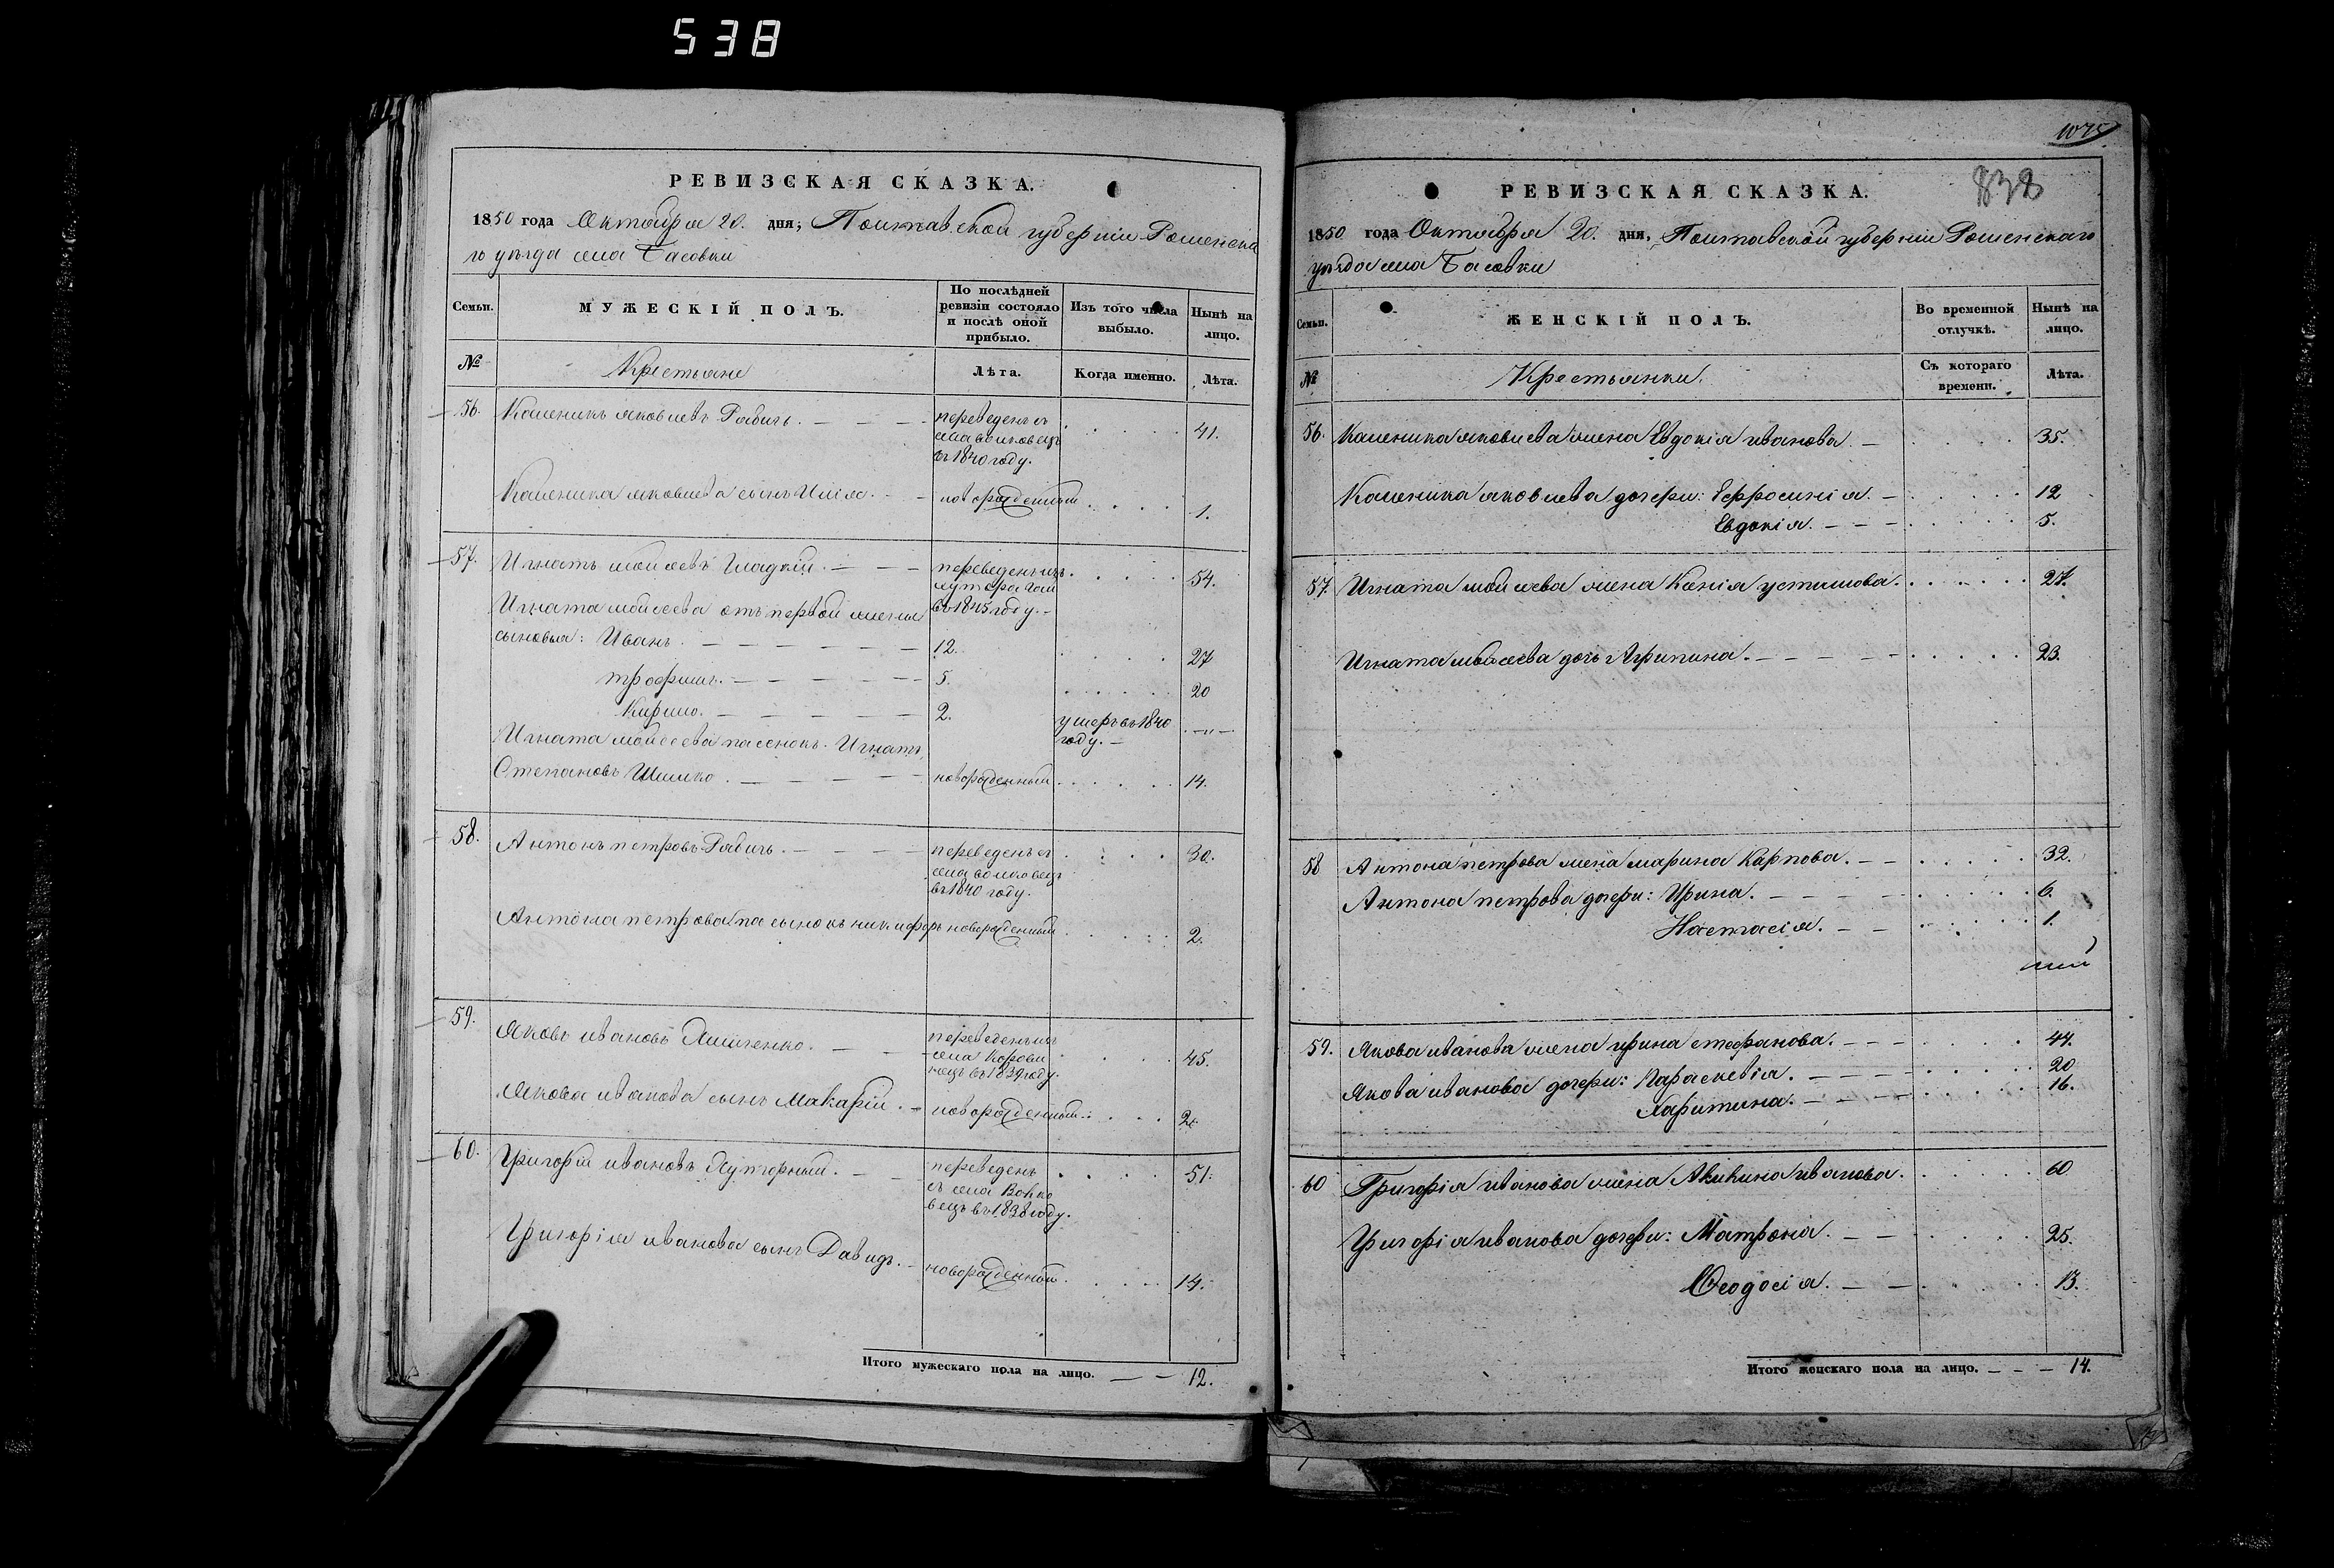 538
РЕВИЗСКАЯ СКАЗКА.
1850 года Октября 20. дня, Полтавской губерніи Роменска
го уѣзда села Басовки
Семьи.
МУЖЕСКІЙ ПОЛЪ.
По послѣдней
ревизіи состояло
и послѣ оной
прибыло.
Изъ того числа
выбыло.
Нынѣ на
лицо.
№
Крестьяне
Лѣта.
Когда именно.
Лѣта.
56. Каленикъ яковлевъ Рябичъ. переведенъ съ 41.
села волковецъ
въ 1840 году.
Каленика яковлева сынъ Илія. новорожденный 1.
57. Игнатъ мойсеевъ Гладкій. переведенъ изъ 54.
хутора
въ 1845 году.
Игната мойсеева отъ первой жены
сыновья: Иванъ. 12. 27
трофимъ. 5. 20
Кирило. 2. умеръ въ 1840 — „ —
году.
Игната мойсеева пасенокъ. Игнатъ
Степановъ Шишко. новорожденный 14.
58. Антонъ петровъ Рябичъ. переведенъ съ 30.
села волковецъ
въ 1840 году.
Антона петрова пасынокъ никифоръ новорожденный 2.
59. Яковъ ивановъ переведенъ изъ 45.
села Корови
нецъ въ 1839 году.
Якова иванова сынъ Макарій. новорожденный. 2.
60. Григорій ивановъ Хуторный. переведенъ 51.
съ села Волко
вецъ въ 1838 году.
Григорія иванова сынъ Давидъ. новорожденный. 14.
Итого мужескаго пола на лицо. 12.
838
РЕВИЗСКАЯ СКАЗКА.
1850 года Октября 20. дня, Полтавской губерніи Роменскаго
уѣзда села Басовки
Семьи.
ЖЕНСКІЙ ПОЛЪ.
Во временной
отлучкѣ.
Нынѣ на
лицо.
№
Крестьянки.
Съ котораго
времени.
Лѣта.
56. Каленика яковлева жена Евдокія иванова. 35.
Каленика яковлева дочери: Ефросинія. 12
Евдокія. 5.
57. Игната мойсеева жена Ксенія устимова. 27.
Игната мойсеева дочь Агрипина. 23.
58 Антона петрова жена марина Карпова. 32.
Антона петрова дочери: Ирина. 6.
Настасія. 1.
59. Якова иванова жена ирина стефанова. 44.
Якова иванова дочери: Параскевія. 20
Харитина. 16.
60 Григорія иванова жена Акилина иванова. 60
Григорія иванова дочери: Матрона. 25.
Ѳеодосія. 13.
Итого женскаго пола на лицо. 14.